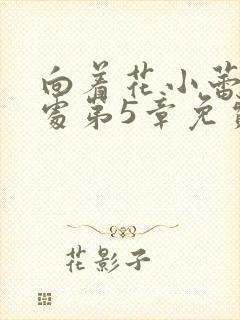 向着花小蕾
处第5章免费
花影子